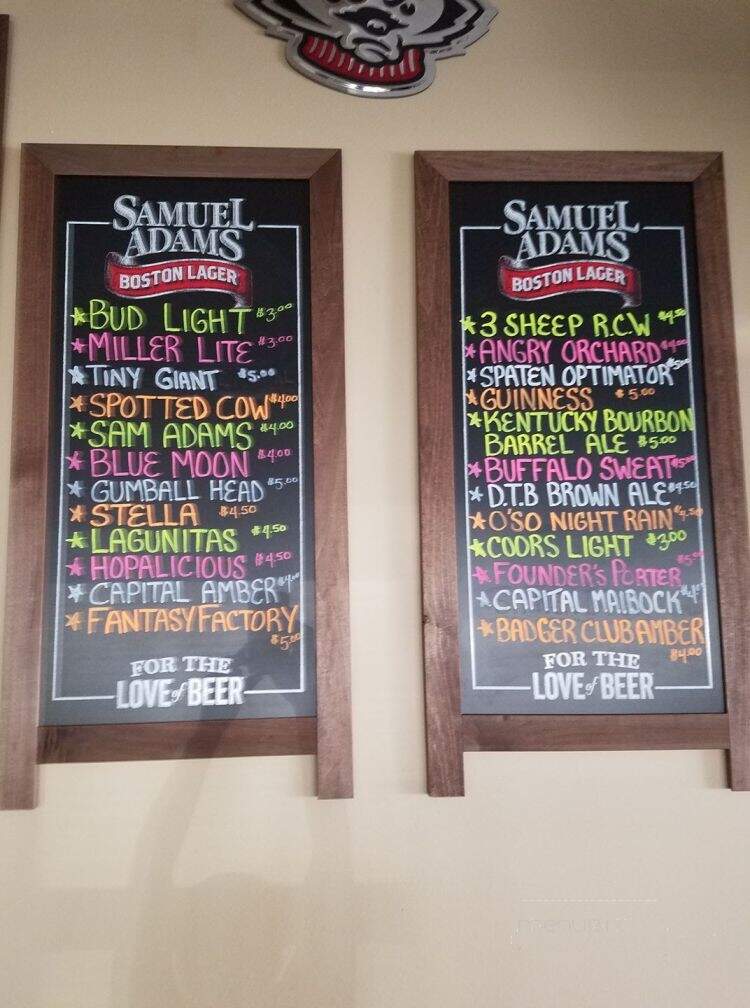 SAMUEL
ADAMS
BOSTON LAGER
★ BUD LIGHT $3.00
★ MILLER LITE $3.00
★ TINY GIANT $5.00
★ SPOTTED COW $4.00
★ SAM ADAMS $4.00
★ BLUE MOON $4.00
★ GUMBALL HEAD $5.00
★ STELLA $4.50
★ LAGUNITAS $4.50
★ HOPALICIOUS $4.50
★ CAPITAL AMBER
★ FANTASY FACTORY
$5.00
FOR THE
LOVE of BEER
SAMUEL
ADAMS
BOSTON LAGER
★ 3 SHEEP R.C.W $4.50
★ ANGRY ORCHARD $4.00
★ SPATEN OPTIMATOR $5.00
★ GUINNESS $5.00
★ KENTUCKY BOURBON
BARREL ALE $5.00
★ BUFFALO SWEAT
★ D.T.B BROWN ALE $4.50
★ O'SO NIGHT RAIN $4.50
★ COORS LIGHT $3.00
★ FOUNDER'S PORTER $5.00
★ CAPITAL MAIBOCK
★ BADGER CLUB AMBER
$4.00
FOR THE
LOVE of BEER